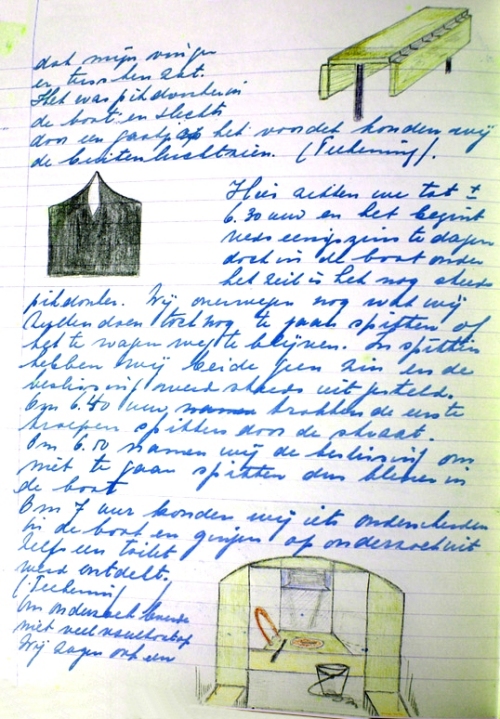 dat mijn vinger
er tusschen zat.
Het was pikdonker in
de boot en slechts
door een gaatje het voordek konden wij
de buitenlucht zien. (Teekening).
Hier zetten we tot ±
6.30 uur en het begint
reeds eenigszins te dagen
doch in de boot onder
het zeil is het nog steeds
pikdonker. Wij overwegen nog wat wij
zullen doen toch nog te gaan spitten of
het te wagen weg te blijven. In spitten
hebben wij beide geen zin en de
beslissing werd steeds uitgesteld.
Om 6.40 uur trokken de eerste
troepen spitters door de straat.
Om 6.50 namen wij de beslissing om
niet te gaan spitten dus bleven in
de boot
Om 7 uur konden wij iets onderscheiden
in de boot en gingen op onderzoek uit
zelfs een toilet
werd ontdekt.
(Teekening
Ons onderzoek
niet veel
Wij zagen ook een